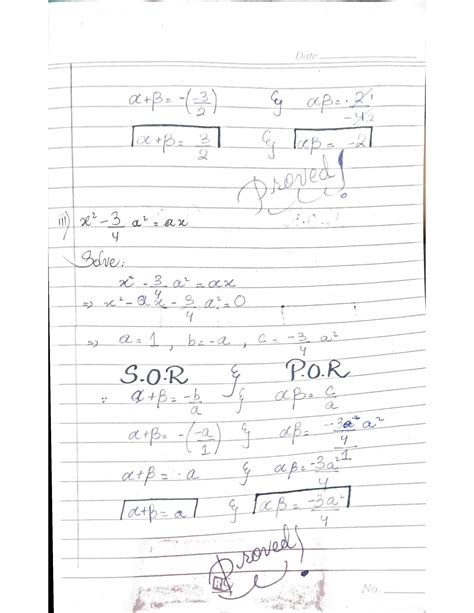 Date
α+β = -(-3/2) & αβ = 2
α+β = 3/2 & αβ = -2
Proved!
iii) x² - 3/4 a² = ax
Solve:
x² - 3/4 a² = ax
⇒ x² - ax - 3/4 a² = 0
⇒ a = 1 , b = -a , c = -3/4 a²
S.O.R & P.O.R
∵ α+β = -b/a & αβ = c/a
α+β = -(-a/1) & αβ = -3/4 a² / 1
α+β = a & αβ = -3a²/4
α+β = a & αβ = -3a²/4
Proved!
No.